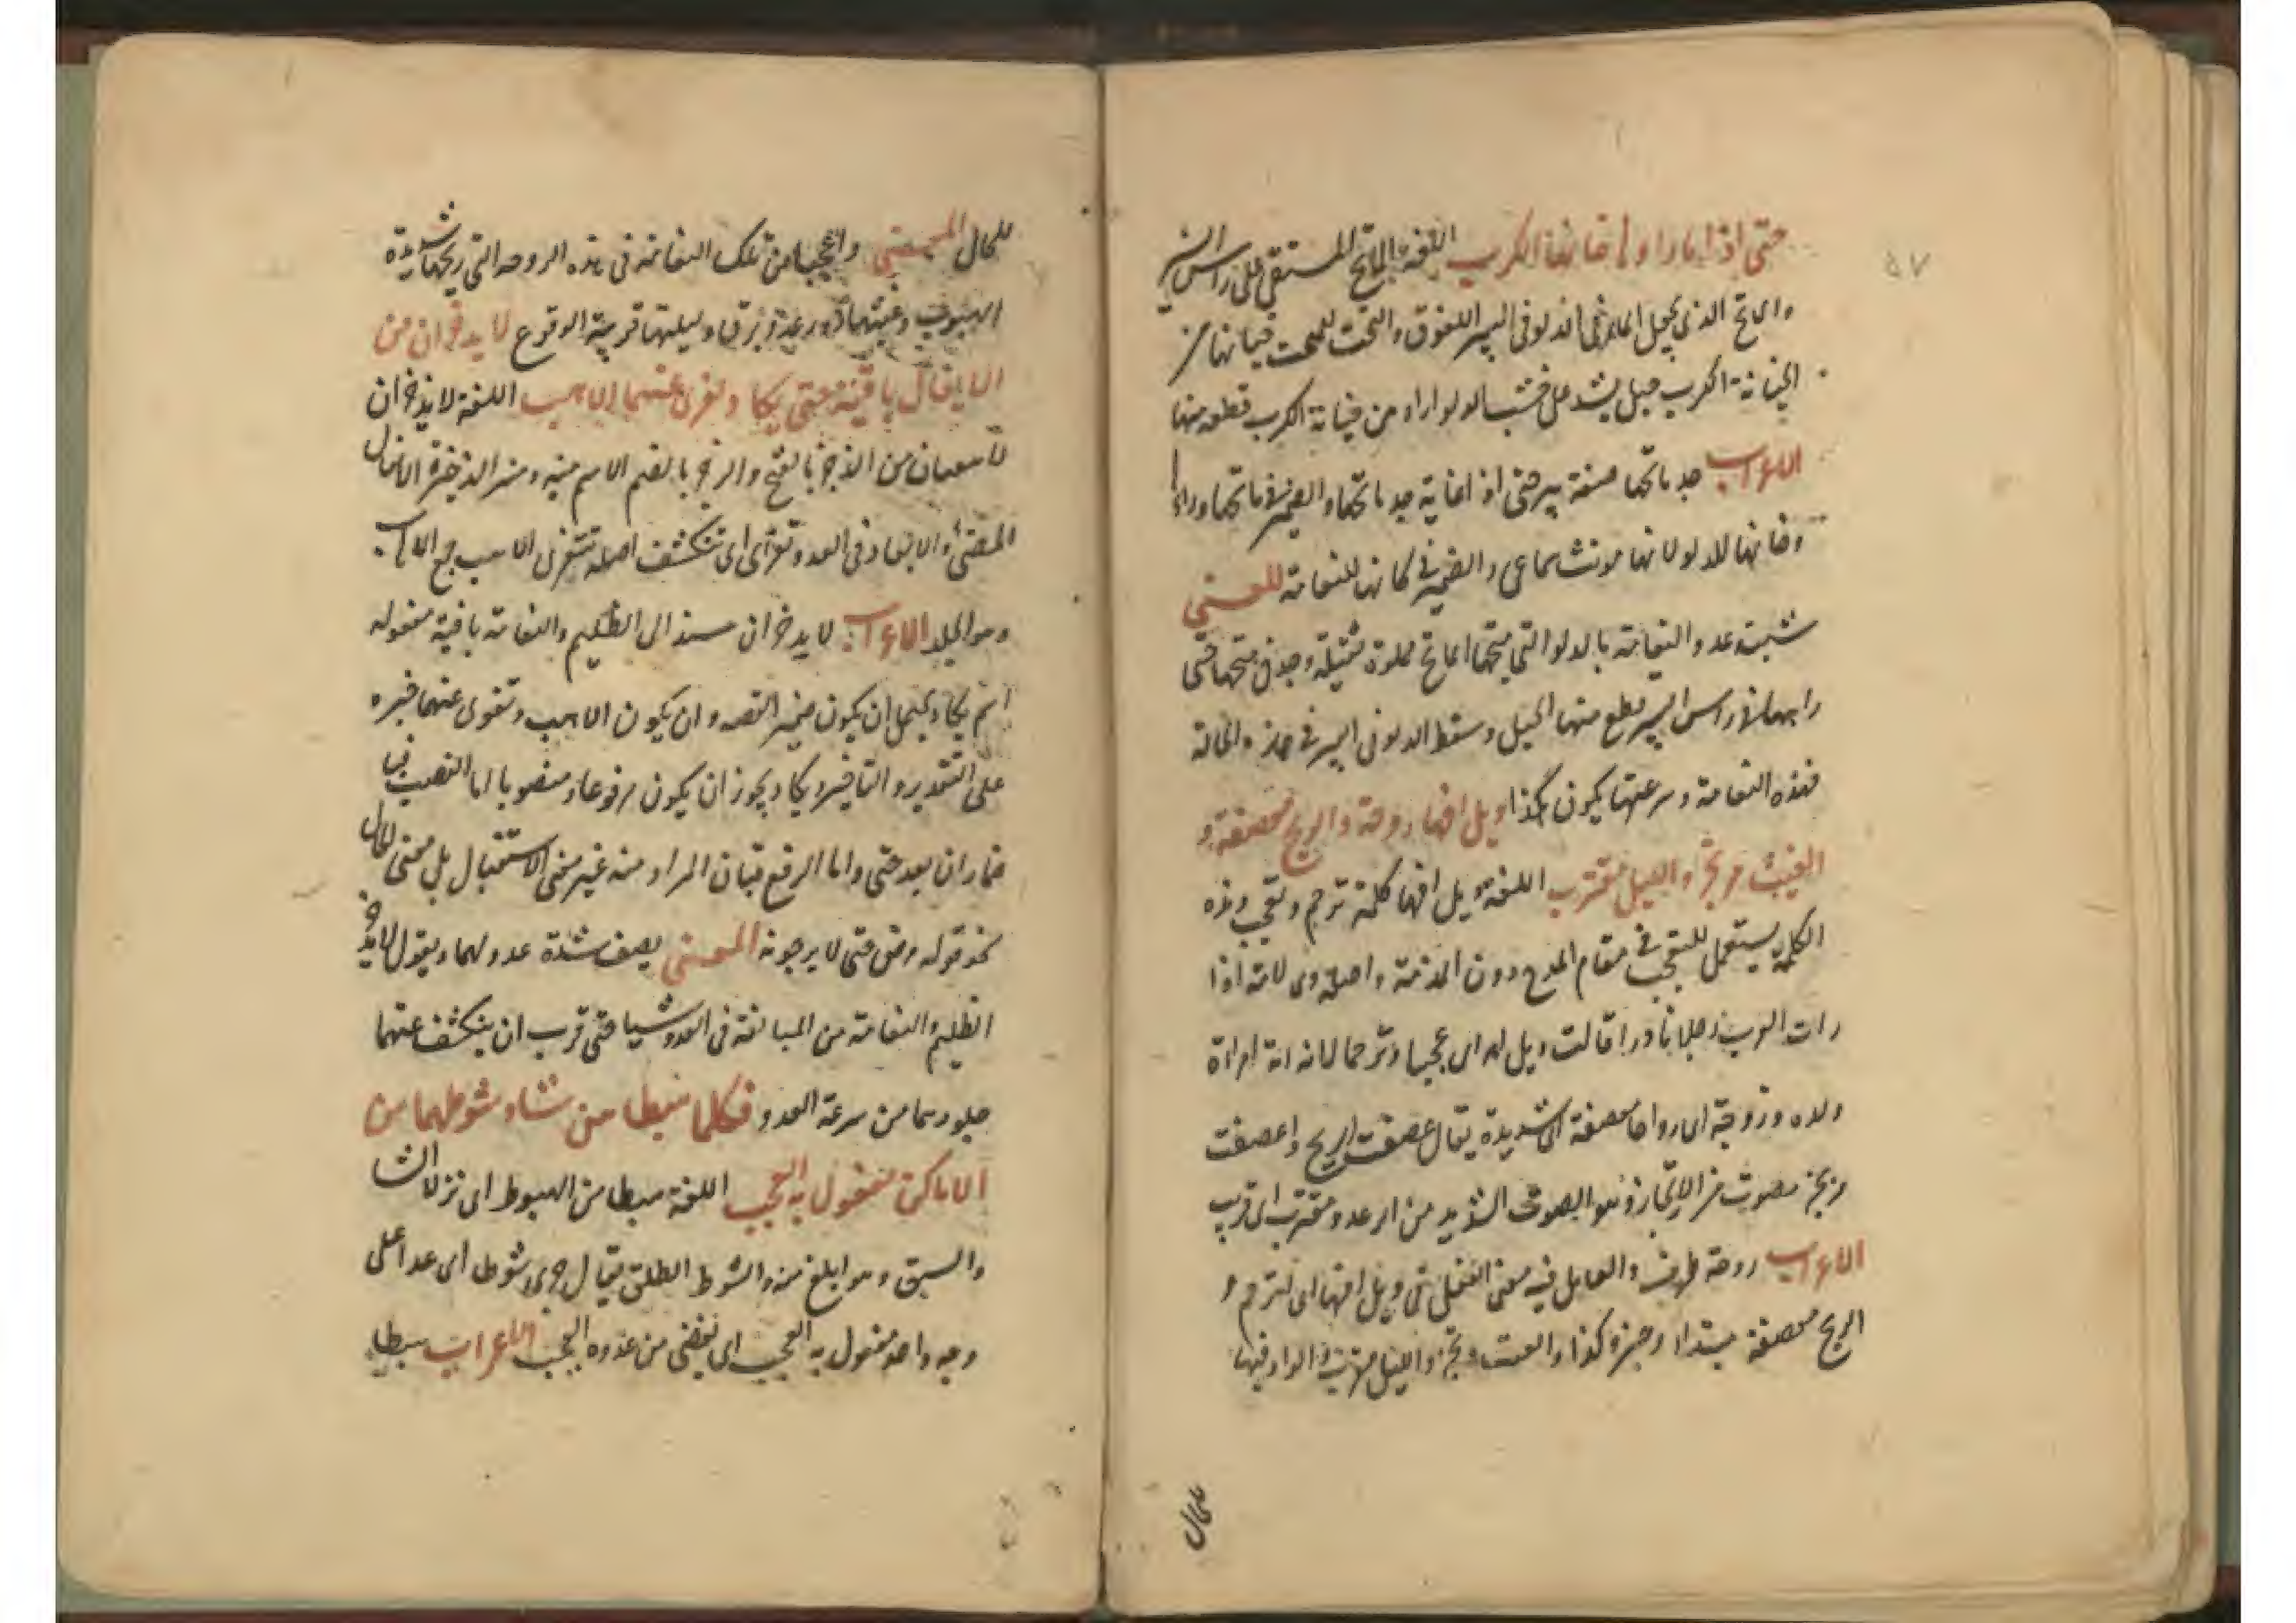 حتى اذا ما رآها خانها الكرب اللغة الماتح المستقي على راس البئر
والمايح الذي يجعل الماء في الدلو في البير الفوق والتحت للتحت خانها من
الخيانة الكرب حبل يشد على خشب الدلو اراد من خيانة الكرب قطعه منها
الاعراب جد ماتحها صفة بير حتى اذا غاية جد ماتحها والضمير في ماتحها وراها
وخانها للدلو لانها مونث سماعي والضمير في كانها للنعامة المعنى
شبه عدو النعامة بالدلو التي متحها الماتح مملوة ثقيلة وجد في متحها حتى
راها في راس البير قطع منها الحبل وسقط الدلو في البير في هذه الحالة
فهذه النعامة وسرعتها يكون هكذا ويل امها روحة والريح معصفة و
الغيث مرتجز والليل مقترب اللغة ويل امها كلمة ترحم وتعجب وهذه
الكلمة يستعمل للتعجب في مقام المدح دون المذمة واصله وي لامه اذا
رات العرب رجلا نادرا قالت ويل له اي عجبا وترحما لانه امراة
ولده وزوجة اي رواحا معصفة اي شديدة يقال عصفت الريح واعصفت
مرتجز مصوت من الارتجاز وهو الصوت الشديد من الرعد ومقترب اي قريب
الاعراب روحة ظرف والعامل فيه معنى الفعل في ويل امها اي اترحم و
الريح معصفة مبتدا وخبره كذا والغيث مرتجز والليل مقترب والواو فيها
للحال
للحال المعنى واعجبا من تلك النعامة في هذه الروحة التي ريحها شديدة
الهبوب وغيثها ذو رعد وبرق وليلتها قريبة الوقوع لا يذخران من
الايغال باقية حتى يكاد تفرى عنهما الاهب اللغة لا يذخران
لا يبقيان من الذخر بالفتح والذخر بالضم الاسم منه ومنه الذخيرة الايغال
المضي والابعاد في العدو وتفرى اي تنكشف اصله تتفرى الاهب جمع الاهاب
وهو الجلد الاعراب لا يذخران مسند الى الظليم والنعامة باقية مفعوله
اسم يكاد يحتمل ان يكون ضمير القصة وان يكون الاهب وتفرى عنهما خبره
على التقدير والتاخير ويكاد يجوز ان يكون مرفوعا ومنصوبا اما النصب فبا
ضمار ان بعد حتى واما الرفع فبان المراد منه غير معنى الاستقبال بل معنى الحال
نحو قوله مرض حتى لا يرجونه المعنى يصف شدة عدولهما ويقول لا يذخر
الظليم والنعامة من المبالغة في العدو شيئا حتى قرب ان ينكشف عنهما
جلودهما من سرعة العدو فكلما هبطا من شاو شوطهما من
الاماكن مفعول به العجب اللغة هبطا من الهبوط اي نزلا الشا
والسبق وهو ابلغ منه والشوط الطلق يقال جرى شوطا اي عدا على
وجه واحد مفعول به العجب اي يقضى من عدوه العجب الاعراب هبطا